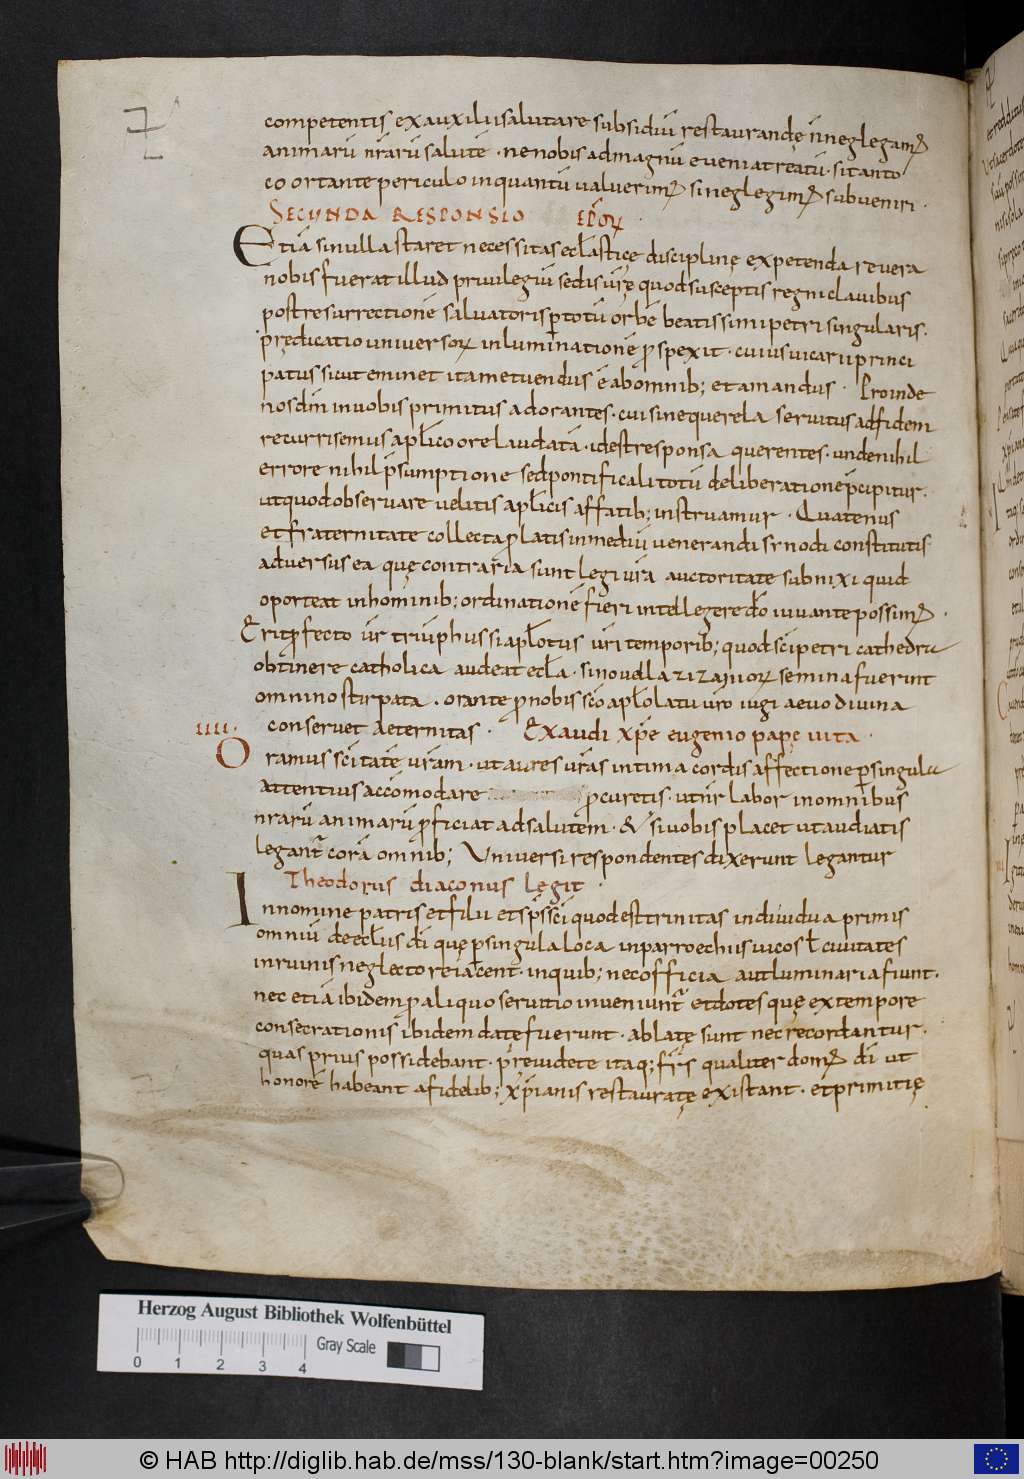 competentis ex auxilii salutare subsidiū restaurande n̄ neglegam̄
animarū nr̄arū salutē · ne nobis ad magnū eveniat reatū · si tanto
co ortante periculo inquantū valuerim̄ si neglegim̄ subveniri ·
SECUNDA RESPONSIO EP̄OR
Etiā si nulla staret necessitas eccl̄astice discipline expetenda revera
nobis fuerat illud privilegiū sedis vr̄ę quod susceptis regni clavibus
post resurrectionē salvatoris p totū orbē beatissimi petri singularis ·
prędicatio universor inluminationē pspexit · cuius vicarii princi
patus sicut eminet ita metuendus ē ab omnib; et amandus · Proinde
nos dm̄ in vobis primitus adorantes · cui sine querela servitis ad fidem
recurrisemus apl̄ico ore laudatā · idest responsa querentes · unde nihil
errore nihil p̄sumptione sed pontificali totū deliberatione p̄cipitur ·
ut quod observare velitis apl̄icis affatib; instruamur · Quatenus
et fraternitate collecta platis in mediū venerandi synodi constitutis
adversus ea quę contraria sunt legi vr̄a auctoritate subnixi quid
oporteat in hominib; ordinationē fieri intellegere dō iuvante possim̄ ·
Erit pfecto vr̄ triūphus si apl̄otus vr̄i temporib; quod sci petri cathedra
obtinere catholica audeat eccl̄a · si novella zizanior semina fuerunt
omnino stirpata · orante p nobis sc̄o apl̄olatū vr̄o iugi aevo divina
conservet aeternitas · Exaudi xp̄e eugenio papę vita ·
IIII · Oramus sc̄itatē vr̄am · ut aures vr̄as intima cordis affectione p singula
attentius accōmodare pcuretis · ut nr̄ labor in omnibus
nr̄arū animarū pficiat ad salutem · & si vobis placet ut audiatis
legant̄ corā omnib; Universi respondentes dixerunt legantur
Theodorus diaconus legit ·
In nomine patris et filii et sp̄s sc̄i quod est trinitas individua primis
omniū de eccl̄iis dī quę p singula loca in parroechiis vicos l̄ civitates
in ruinis neglecto reiacent · in quib; nec officia aut luminaria fiunt ·
nec etiā ibidem p aliquo servitio inveniunt̄ et dotes quę ex tempore
consecrationis ibidem datę fuerunt · ablatę sunt nec recordantur ·
quas prius possidebant · p̄revidete itaq; fr̄s qualiter dom̄ dī ut
honorē habeant a fidelib; xp̄ianis restauratę existant · et primitię
Herzog August Bibliothek Wolfenbüttel
Gray Scale
0 1 2 3 4
© HAB http://diglib.hab.de/mss/130-blank/start.htm?image=00250